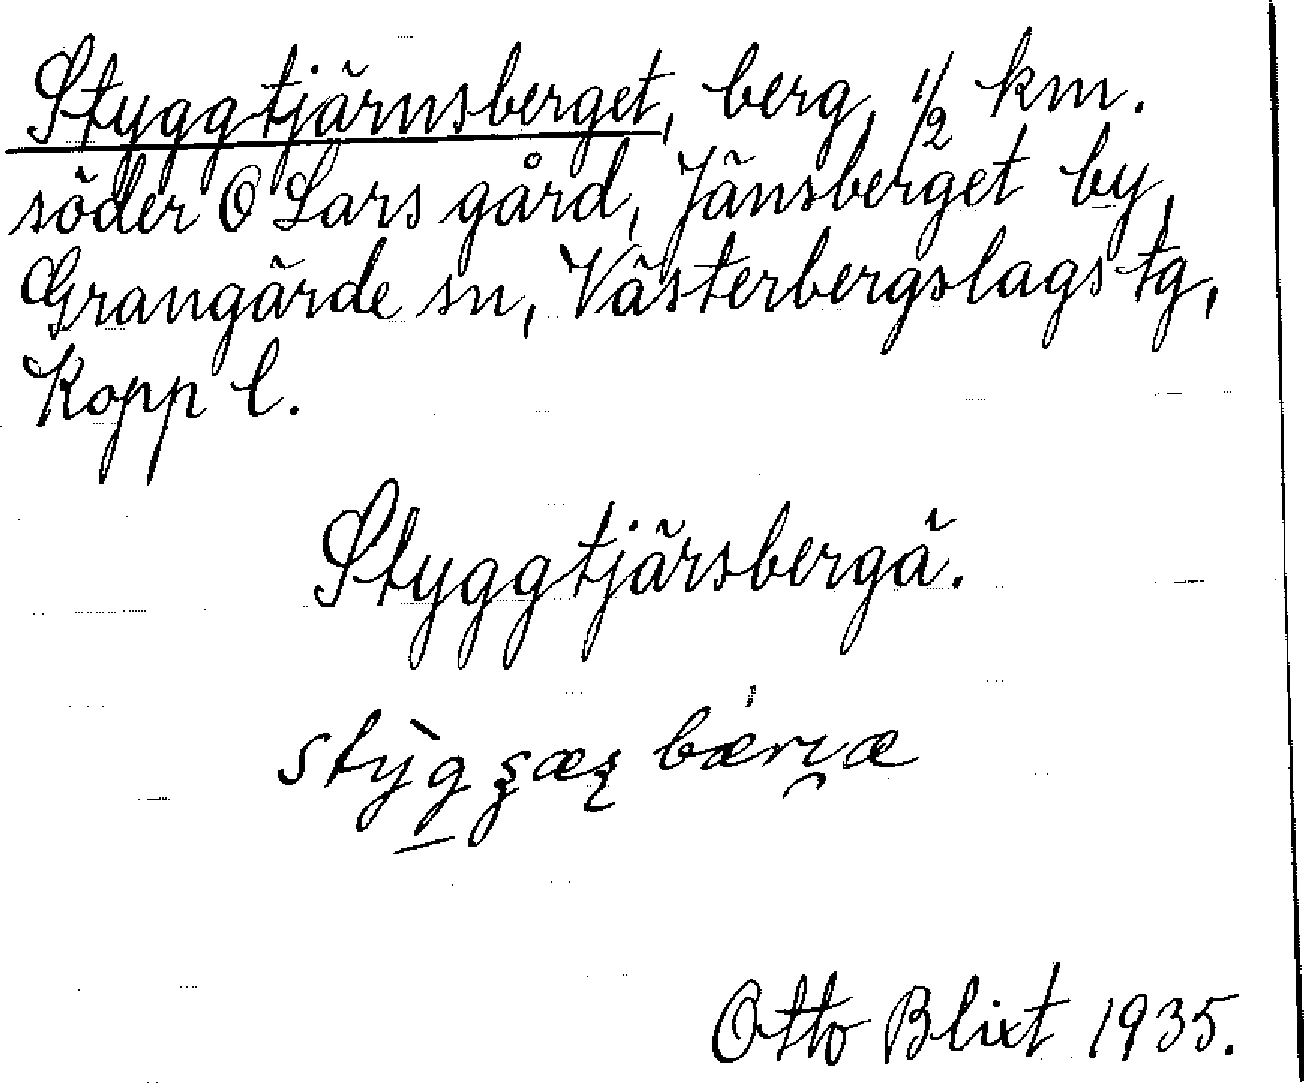 Styggtjärnsberget, berg, 1/2 km.
söder O Lars gård, Jänsberget by,
Grangärde sn, Västerbergslags tg,
Kopp l.
Styggtjärsbergä.
Otto Blixt 1935.